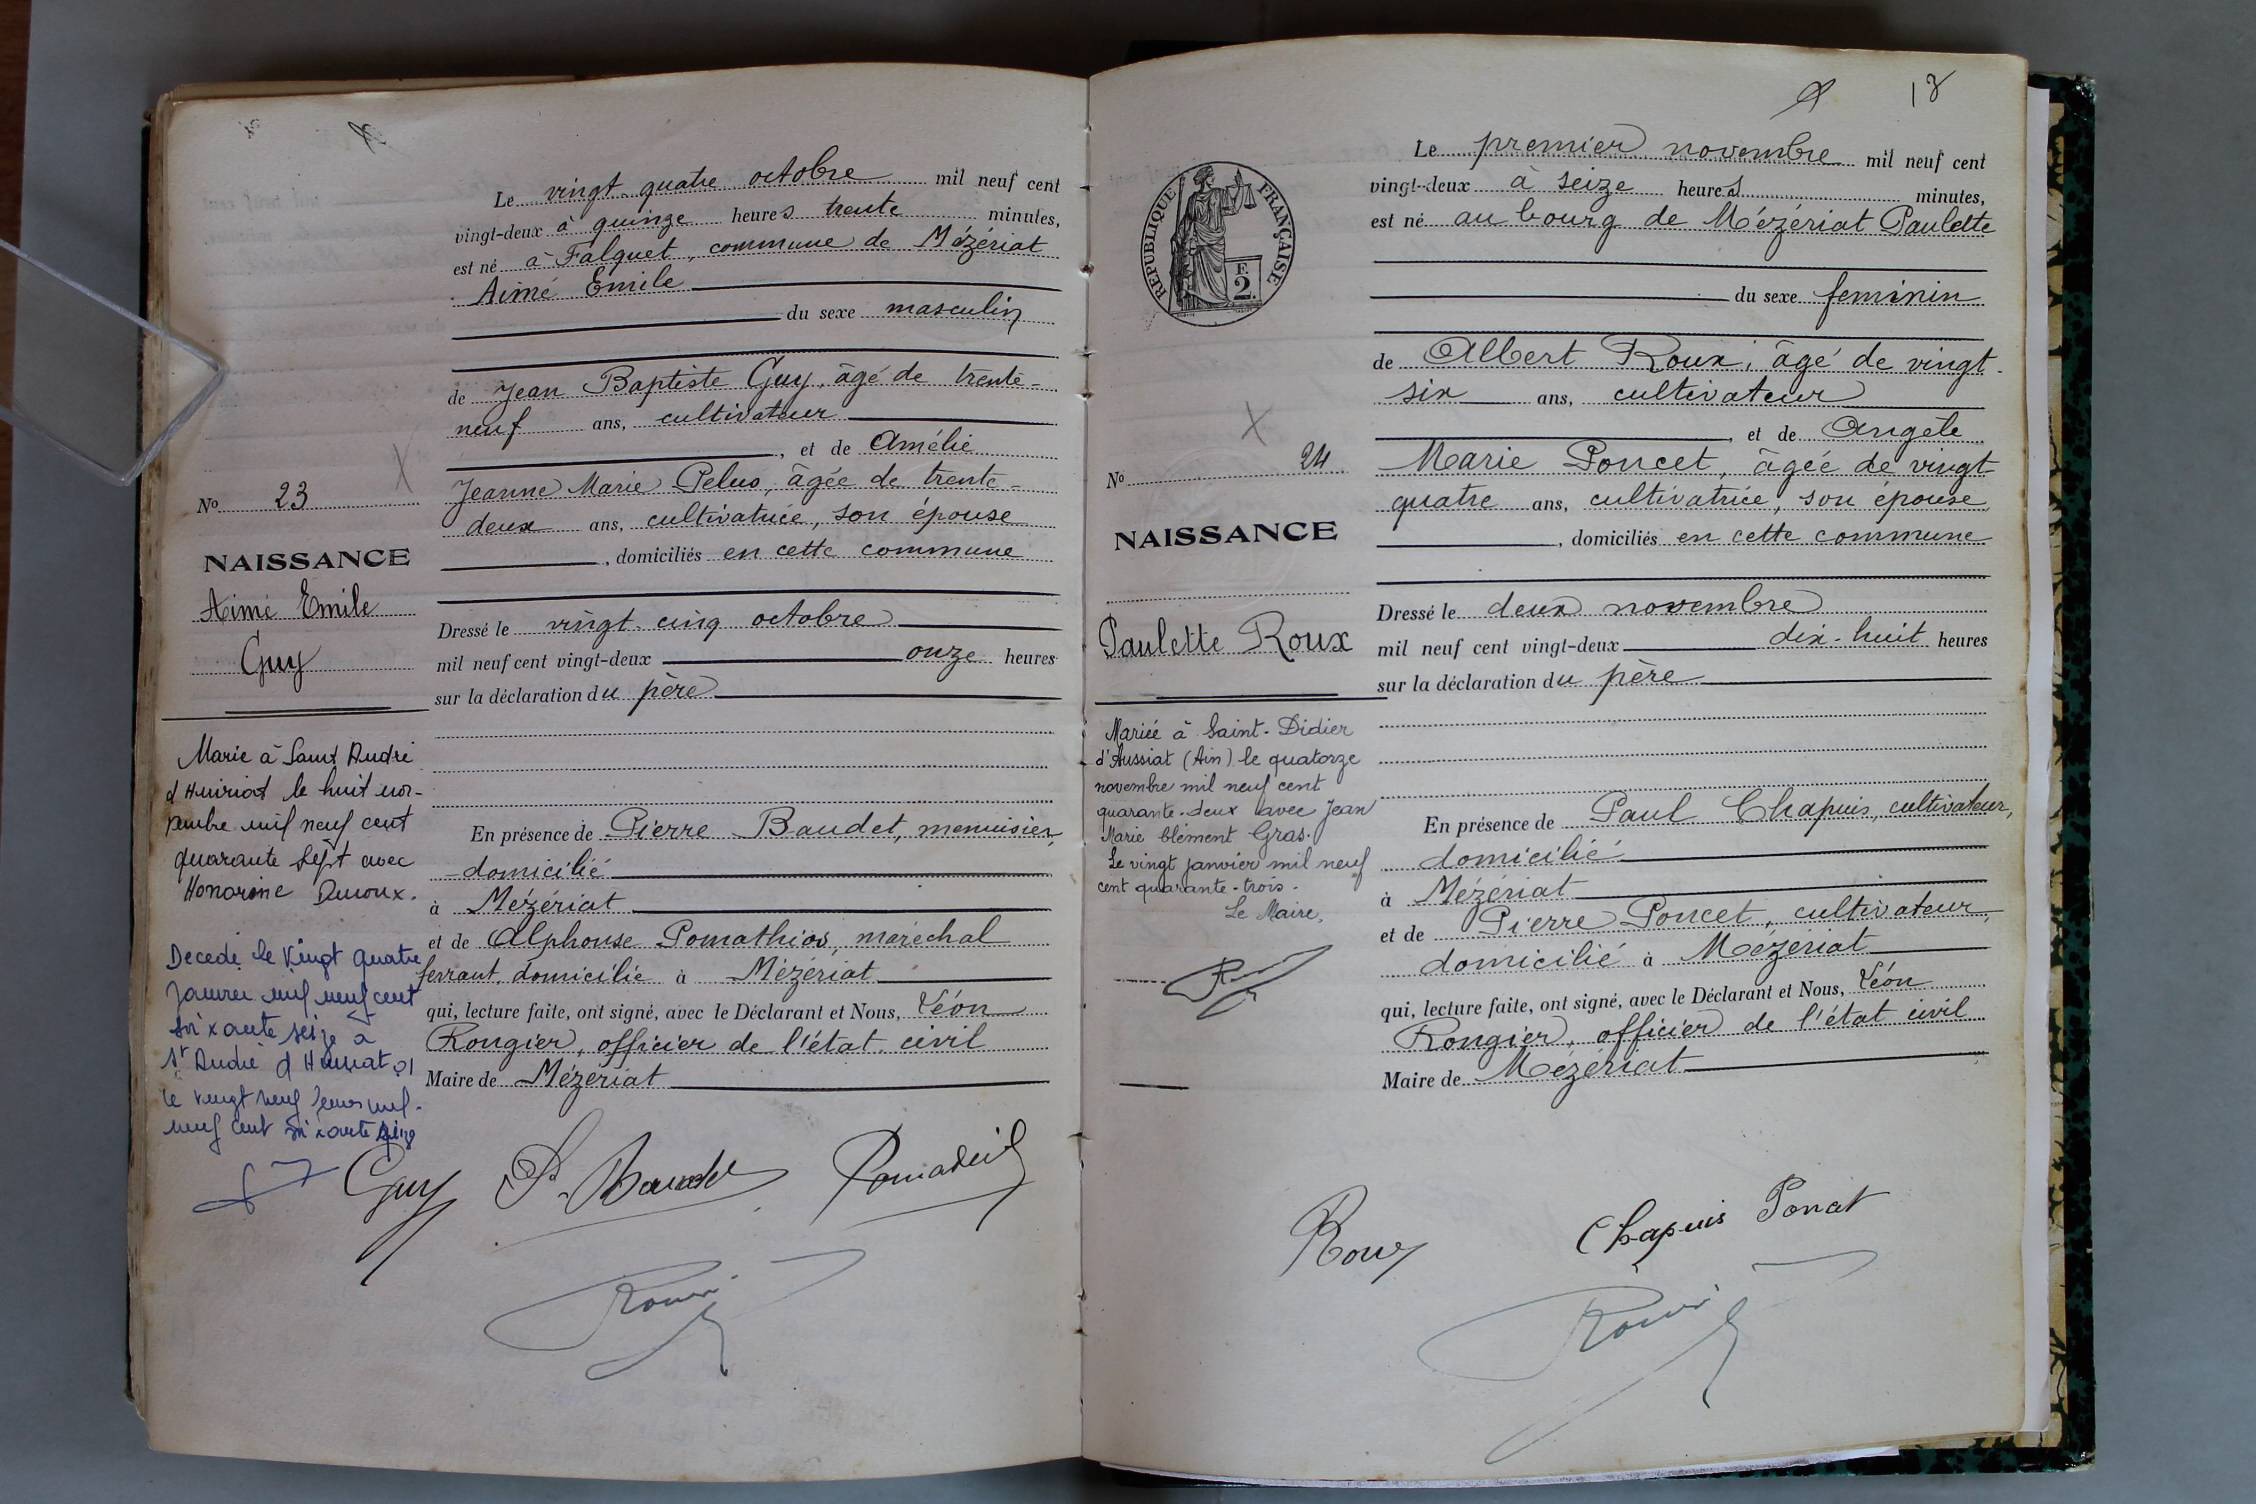 Le vingt quatre octobre mil neuf cent
vingt-deux à quinze heures trente minutes,
est né à Falquet, commune de Mézériat
Aimé Emile
du sexe masculin
de Jean Baptiste Guy, âgé de trente-
neuf ans, cultivateur
, et de Amélie
Jeanne Marie Pelus, âgée de trente-
deux ans, cultivatrice, son épouse
, domiciliés en cette commune
Dressé le vingt cinq octobre
mil neuf cent vingt-deux onze heures
sur la déclaration du père
En présence de Pierre Baudet, menuisier,
domicilié
à Mézériat
et de Alphonse Pomathios, maréchal
ferrant, domicilié à Mézériat
qui, lecture faite, ont signé, avec le Déclarant et Nous, Léon
Rongier, officier de l'état civil
Maire de Mézériat
No 23
NAISSANCE
Aimé Emile
Guy
Marié à Saint André
d'Huiriat le huit nov-
embre mil neuf cent
quarante sept avec
Honorine Duroux.
Décédé le vingt quatre
Janvier mil neuf cent
soixante seize à
St André d'Huiriat 01
le vingt neuf Janvier mil-
neuf cent soixante seize
Guy P. Baudet
18
Le premier novembre mil neuf cent
vingt-deux à seize heures minutes,
est né au bourg de Mézériat Paulette
du sexe feminin
de Albert Roux, âgé de vingt-
six ans, cultivateur
, et de Angèle
Marie Poncet, âgée de vingt
quatre ans, cultivatrice, son épouse
, domiciliés en cette commune
Dressé le deux novembre
mil neuf cent vingt-deux dix-huit heures
sur la déclaration du père
En présence de Paul Chapuis, cultivateur,
domicilié
à Mézériat
et de Pierre Poncet, cultivateur,
domicilié à Mézériat
qui, lecture faite, ont signé, avec le Déclarant et Nous, Léon
Rongier, officier de l'état civil
Maire de Mézériat
REPUBLIQUE FRANÇAISE
F.
2
No 24
NAISSANCE
Paulette Roux
Mariée à Saint-Didier
d'Aussiat (Ain) le quatorze
novembre mil neuf cent
quarante-deux avec Jean
Marie Clément Gras.
Le vingt janvier mil neuf
cent quarante-trois.
Le Maire,
Roux Chapuis Poncet